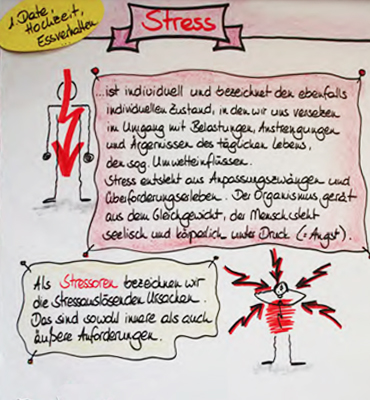 1. Date,
Hochzeit,
Essverhalten...
Stress
...ist individuell und bezeichnet den ebenfalls
individuellen Zustand, in den wir uns versetzen
im Umgang mit Belastungen, Anstrengungen
und Ärgernissen des täglichen Lebens,
den sog. Umwelteinflüssen.
Stress entsteht aus Anpassungszwängen und
Überforderungserleben. Der Organismus gerät
aus dem Gleichgewicht, der Mensch steht
seelisch und körperlich unter Druck (= Angst).
Als Stressoren bezeichnen wir
die stressauslösenden Ursachen.
Das sind sowohl innere als auch
äußere Anforderungen.